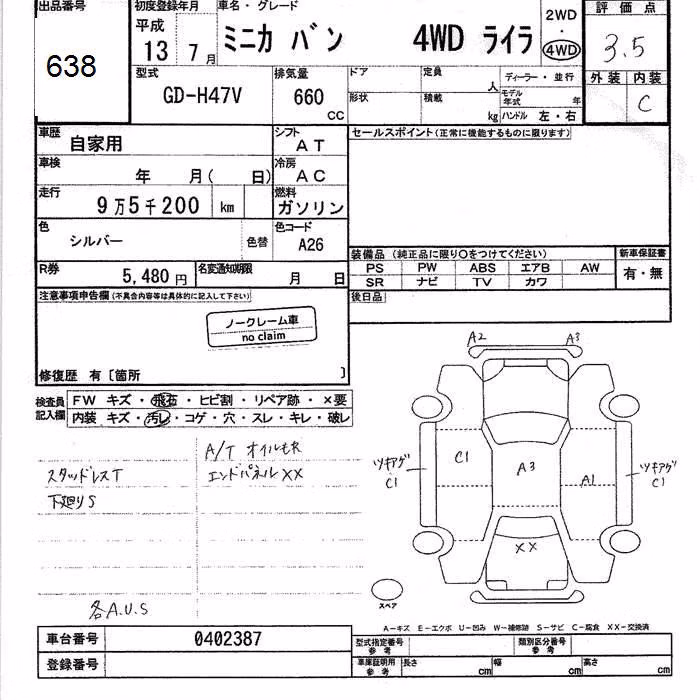 出品番号
638
初度登録年月
平成
13 7 月
車名・グレード
ミニカ バン 4WD ライラ
2WD
・
4WD
評価点
3.5
外装 内装
C
型式
GD-H47V
排気量
660
CC
ドア
定員
人
形状
積載
kg
ディーラー・並行
モデル年式 年
ハンドル 左・右
車歴
自家用
シフト
AT
セールスポイント(正常に機能するものに限ります)
車検
年 月( 日)
冷房
AC
走行
9万5千200 km
燃料
ガソリン
色
シルバー
色替
色コード
A26
装備品 (純正品に限り○をつけてください)
PS PW ABS エアB AW
SR ナビ TV カワ
新車保証書
有・無
R券
5,480円
名変通知期限
月 日
後日品
注意事項申告欄(不具合内容等は具体的に記入して下さい)
ノークレーム車
no claim
修復歴 有〔箇所 〕
検査員記入欄
FW キズ・飛石・ヒビ割・リペア跡・×要
内装 キズ・汚れ・コゲ・穴・スレ・キレ・破レ
A/T オイルモレ
スタッドレスT
エンドパネル××
下廻りS
各A.U.S
A2 A3
ツキアゲ
C1
C1
A3
A1
ツキアゲ
C1
××
スペア
A-キズ E-エクボ U-凹み W-補修跡 S-サビ C-腐食 XX-交換済
車台番号
0402387
登録番号
型式指定番号
参考
類別区分番号
参考
車庫証明用
参考
長さ cm
幅 cm
高さ cm